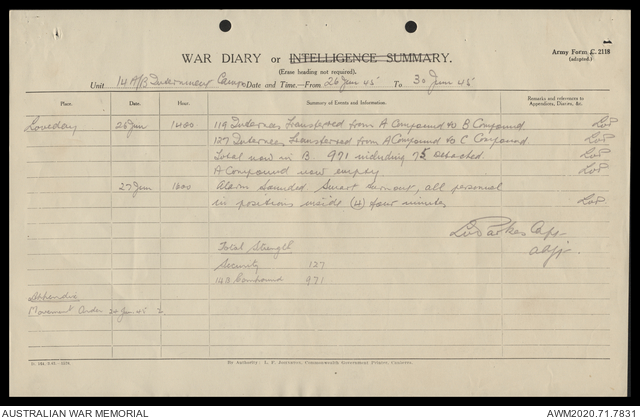 WAR DIARY or INTELLIGENCE SUMMARY.
(Erase heading not required).
Army Form C. 2118
(adapted.)
Unit 14 A/B Internment Camp Date and Time.—From 26 Jun 45 To 30 Jun 45
Place. Date. Hour. Summary of Events and Information. Remarks and references to Appendices, Diaries, &c.
Loveday 26 Jun 1400 119 Internees transferred from A Compound to B Compound. LvP
127 Internees transferred from A Compound to C Compound. LvP
Total now in B. 971 including 75 Detached LvP
A Compound now empty. LvP
27 Jun 1600 Alarm Sounded Smart turnout, all personnel
in positions inside (4) four minutes LvP
Parkes Capt
Adjt.
Total Strength
Security 127
14B Compound 971
Appendix
Movement Order 20 Jun 45 2
By Authority: L. F. Johnston, Commonwealth Government Printer, Canberra.
AUSTRALIAN WAR MEMORIAL
AWM2020.71.7831